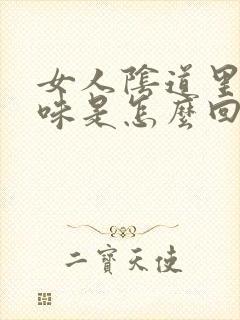 女人陰道里
味是怎麼回
二寶天使